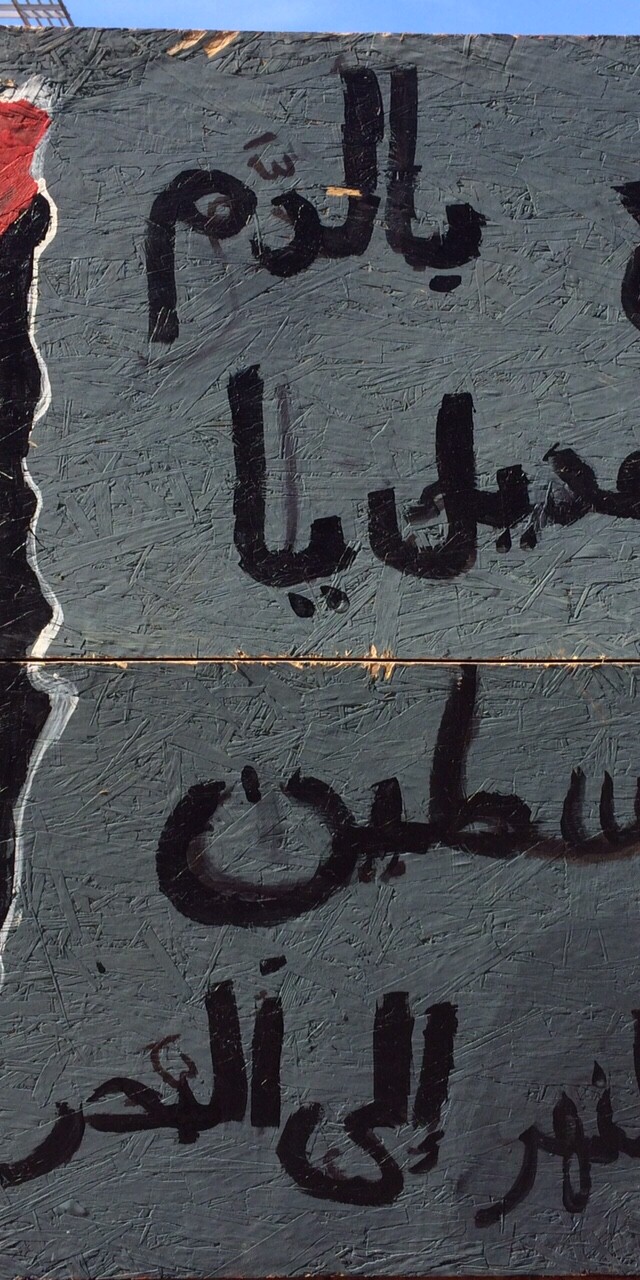 بالدّم
يا
سطين
نهر إلى البحر